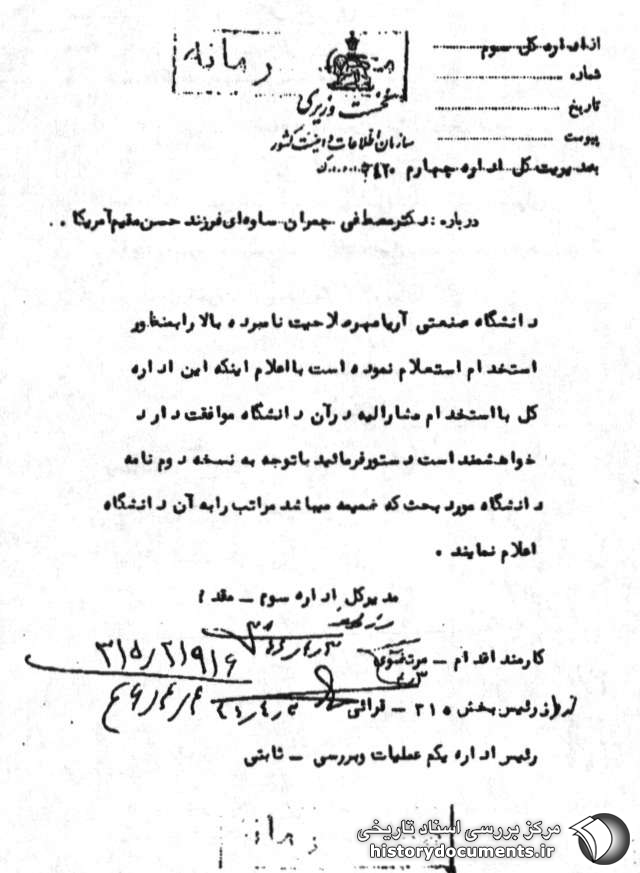 محرمانه
از اداره کل سوم
شماره
تاریخ
پیوست
نخست وزیری
سازمان اطلاعات و امنیت کشور
بمدیریت کل اداره چهارم
درباره : دکتر مصطفی چمران ساوه‌ای فرزند حسن مقیم آمریکا .
دانشگاه صنعتی آریامهر صلاحیت نامبرده بالا را بمنظور
استخدام استعلام نموده است با اعلام اینکه این اداره
کل با استخدام مشارالیه در آن دانشگاه موافقت دارد
خواهشمند است دستور فرمائید با توجه به نسخه دوم نامه
دانشگاه مورد بحث که ضمیمه میباشد مراتب را به آن دانشگاه
اعلام نمایند .
مدیرکل اداره سوم – مقدم
کارمند اقدام – مرتضوی
۳۱۵/۲۱۹۱۶
رئیس بخش ۳۱۵ –
رئیس اداره یکم عملیات وبررسی – ثابتی
مرکز بررسی اسناد تاریخی
historydocuments.ir